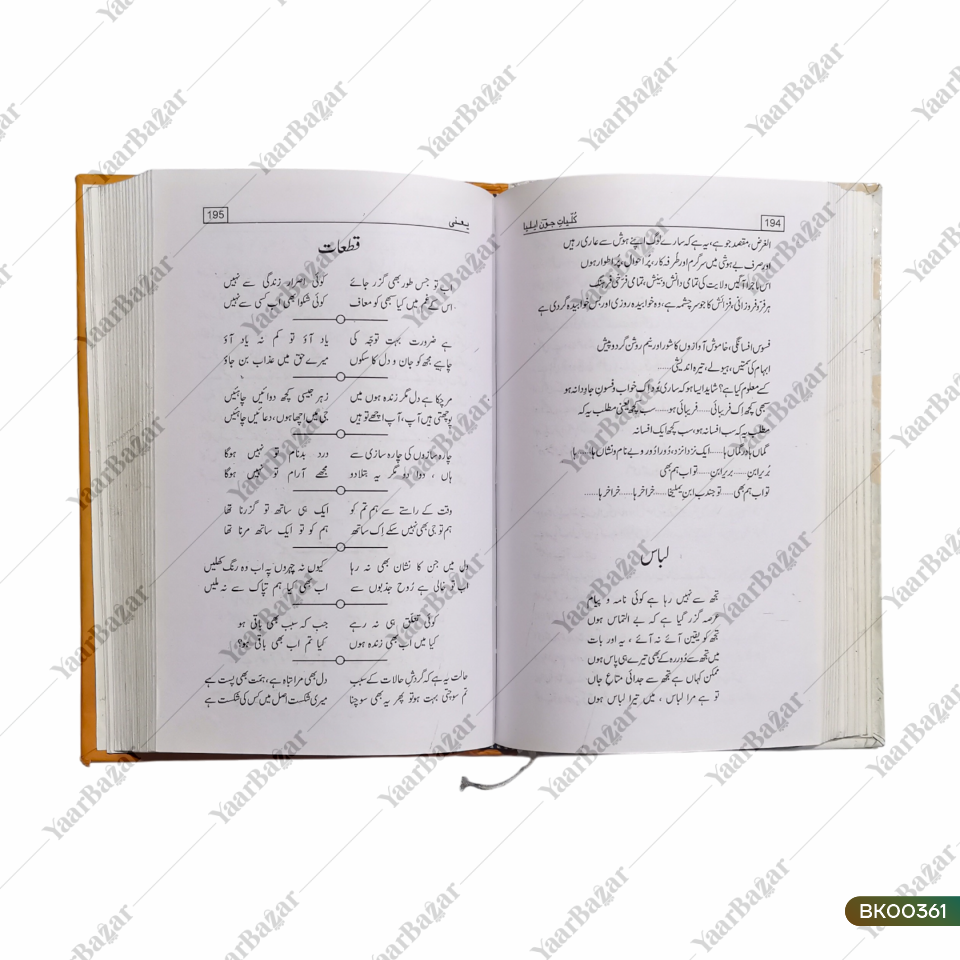 194
کلیاتِ جون ایلیا
الغرض، مقصد جو ہے، یہ ہے کہ سارے لوگ اپنے ہوش سے عاری رہیں
اور صرف بے ہوشی میں سرگرم اور طُرفہ کار، پُراحوال، پُراطوار ہوں
اس ماجرا آگیں ولایت کی تمامی دانش و بینش، تمامی فرّخی فرہنگ
ہر فرّوفروزانی، فزائش کا جو سرچشمہ ہے، وہ خوابیدہ روزی اور بس خوابیدہ گردی ہے
فسوس افسانگی، خاموش آوازوں کا شور اور نیم روشن گردوپیش
ابہام کی سمتیں، ہیولے، تیرہ اندیشی......
کسے معلوم کیا ہے؟ شاید ایسا ہو کہ ساری بُود اِک خواب و فسونِ جاودانہ ہو
سبھی کچھ اِک فریبائی......فریبائی ہو......سب کچھ یعنی مطلب یہ کہ
مطلب یہ کہ سب افسانہ ہو، سب کچھ ایک افسانہ
گماں ہا در گماں ہا......ایک نزدا نزد، دُورا دُور و بے نام و نشاں ہا......ہا
بُریرا بن......بریرا بن......تو اب ہم بھی
تو اب ہم بھی......تو جندب ابن یملیخا......خراخر ہا......خراخر ہا......
لباس
تجھ سے نہیں رہا ہے کوئی نامہ و پیام
عرصہ گزر گیا ہے کہ بے التماس ہوں
تجھ کو یقین آئے نہ آئے ، یہ اور بات
میں تجھ سے دُور رہ کے بھی تیرے ہی پاس ہوں
ممکن کہاں ہے تجھ سے جدائی متاعِ جاں
تو ہے مرا لباس ، میں تیرا لباس ہوں
یعنی
195
قطعات
ہے تو جس طور بھی گزر جائے کوئی اصرار زندگی سے نہیں
اس کے غم میں کیا سبھی کو معاف کوئی شکوا بھی اب کسی سے نہیں
ہے ضرورت بہت توجّہ کی یاد آؤ تو کم نہ یاد آؤ
چاہیے مجھ کو جان و دل کا سکوں میرے حق میں عذاب بن جاؤ
مر چکا ہے دل مگر زندہ ہوں میں زہر جیسی کچھ دوائیں چاہئیں
پوچھتی ہیں آپ، آپ اچھے تو ہیں جی میں اچھا ہوں، دعائیں چاہئیں
چارہ سازوں کی چارہ سازی سے درد بدنام تو نہیں ہوگا
ہاں ، دوا دو مگر یہ بتلا دو مجھے آرام تو نہیں ہوگا
وقت کے راستے سے ہم تم کو ایک ہی ساتھ تو گزرنا تھا
ہم تو جی بھی نہیں سکے اِک ساتھ ہم کو تو ایک ساتھ مرنا تھا
دل میں جن کا نشان بھی نہ رہا کیوں نہ چہروں پہ اب وہ رنگ کھلیں
اب تو خالی ہے رُوح جذبوں سے اب بھی کیا ہم تپاک سے نہ ملیں
کوئی تعلّق ہی نہ رہے جب کہ سبب بھی باقی ہو
کیا میں اب بھی زندہ ہوں کیا تم اب بھی باقی ہو؟
حالت یہ ہے کہ گردشِ حالات کے سبب دل بھی مرا تباہ ہے، ہمت بھی پست ہے
تم سوچتی بہت ہو تو پھر یہ بھی سوچنا میری شکست اصل میں کس کی شکست ہے
BK00361
YaarBazar